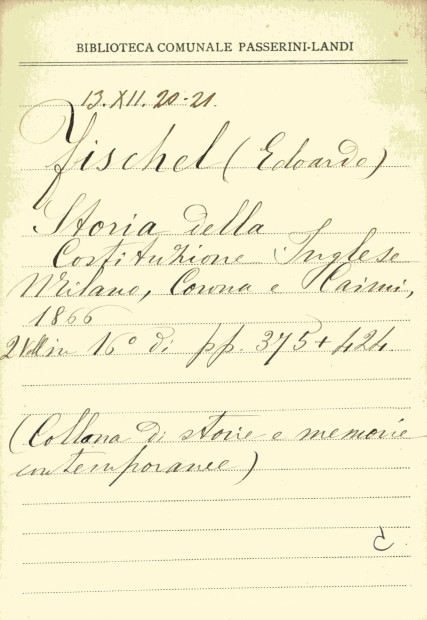 BIBLIOTECA COMUNALE PASSERINI-LANDI
13.XII.20-21.
Fischel (Edoardo)
Storia della
Costituzione Inglese
Milano, Corona e Caimi,
1866
2 Voll in 16° di pp. 375 + 424
(Collana di storie e memorie
contemporanee)
C.